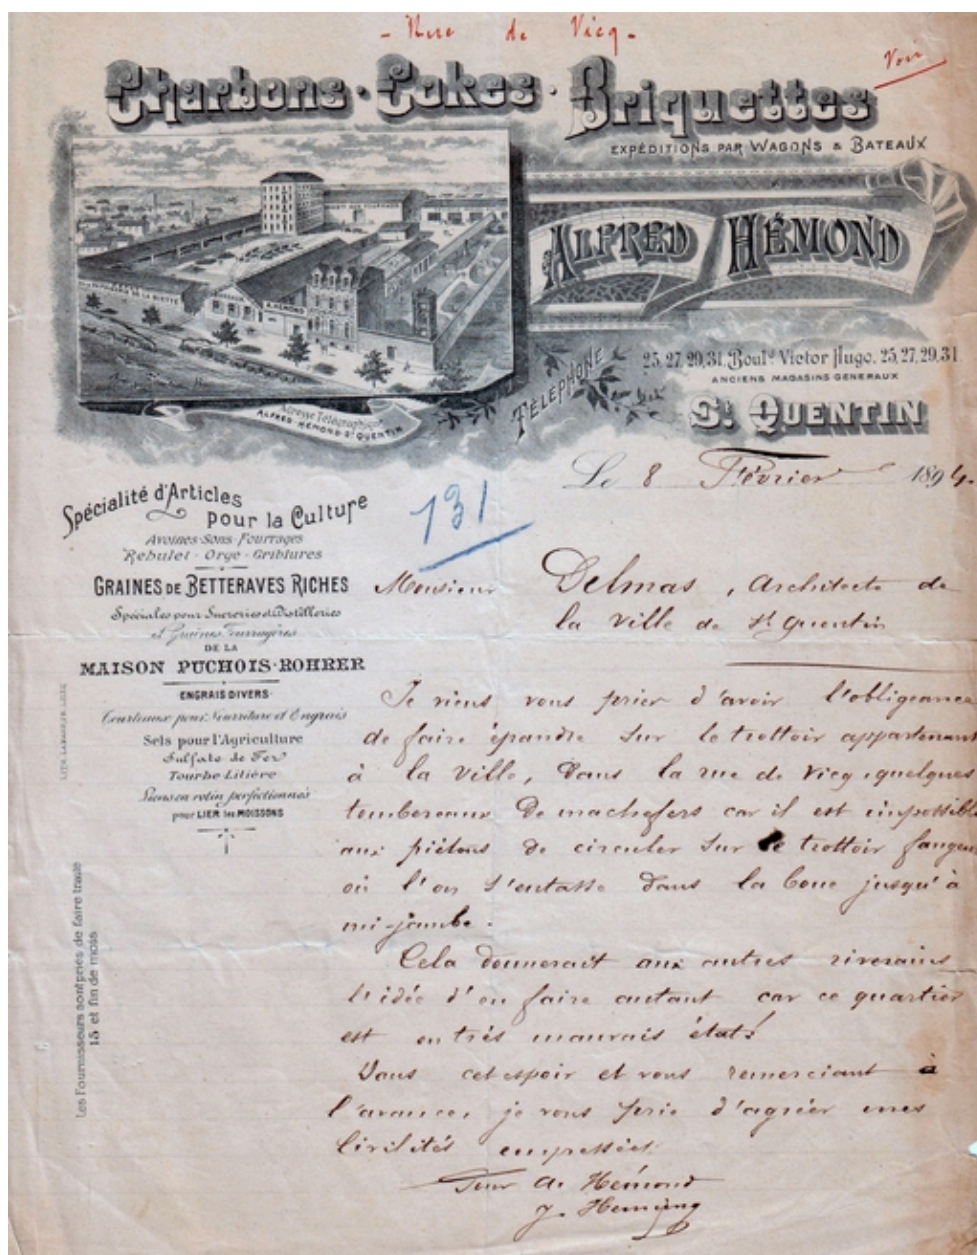 - Rue de Vicq -
Voir
Charbons · Cokes · Briquettes
EXPÉDITIONS PAR WAGONS & BATEAUX
ALFRED HÉMOND
DE LA BIETTE
A. HÉMOND
Adresse Télégraphique
ALFRED-HÉMOND-ST QUENTIN
TÉLÉPHONE
25, 27, 29, 31, Bould Victor Hugo, 25, 27, 29, 31
ANCIENS MAGASINS GENERAUX
St. QUENTIN
Le 8 Février 1894.
131
Spécialité d'Articles
pour la Culture
Avoines-Sons-Fourrages
Rebulet - Orge - Criblures
GRAINES DE BETTERAVES RICHES
Spéciales pour Sucreries et Distilleries
et Graines Fourragères
DE LA
MAISON PUCHOIS-ROHRER
ENGRAIS DIVERS
Tourteaux pour Nourriture et Engrais
Sels pour l'Agriculture
Sulfate de Fer
Tourbe Litière
Liens en rotin perfectionnés
pour LIER les MOISSONS
Les Fournisseurs sont priés de faire traite
15 et fin de mois
Monsieur Delmas, Architecte de
la Ville de St Quentin
Je viens vous prier d'avoir l'obligeance
de faire épandre sur le trottoir appartenant
à la Ville, Dans la rue de Vicq, quelques
tombereaux De machefers car il est impossible
aux piétons de circuler sur le trottoir fangeu
où l'on s'entasse Dans la boue jusqu'à
mi-jambe.
Cela donnerait aux autres riverains
l'idée d'en faire autant car ce quartier
est en très mauvais état!
Dans cet espoir et vous remerciant à
l'avance, je vous prie d'agréer mes
Civilités empressées
Pour A. Hémond